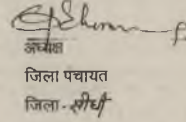 अध्यक्ष
जिला पचायत
जिला - सीधी